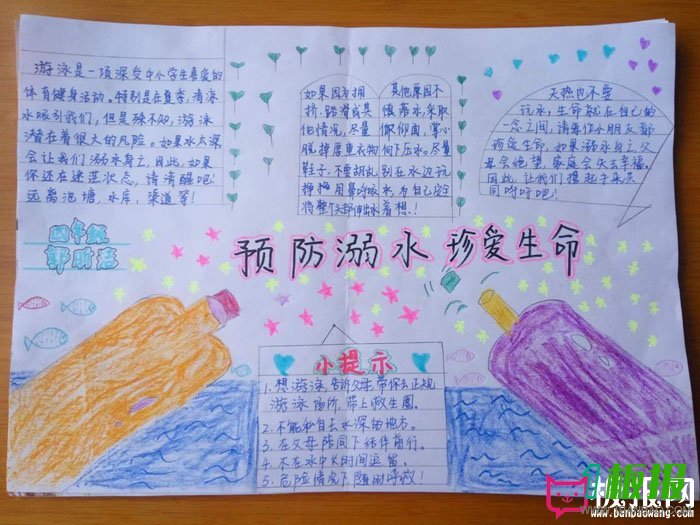 游泳是一项深受中小学生喜爱的
体育健身活动。特别是在夏季,清凉
水吸引我们,但是殊不知,游泳
潜在着很大的风险。如果水太深
会让我们溺水身亡,因此,如果
你还在迷茫状态,请清醒吧!
远离池塘,水库,渠道等!
如果因为拥
挤、踏滑或其
他情况,尽量
脱掉厚重衣物
鞋子,不要胡乱
挣扎用鼻呼吸
将整个头部伸出水
其他原因不
慎落水采取
仰卧面,掌心
向下压水。尽量
别在水边玩
水,为自己安全
着想!
天热也不要
玩水,生命就在自己的
一念之间,请每位小朋友都
珍爱生命,如果溺水身亡,父
母会绝望,家庭会失去幸福。
因此,让我们携起手来共
同呼吁吧!
四年级
郭昕洁
预防溺水 珍爱生命
小提示
1、想游泳,告诉父母,带你去正规
游泳场所,带上救生圈。
2、不能私自去水深的地方。
3、在父母陪同下结伴前行。
4、不在水中长时间逗留,
5、危险情况下随时呼救!
板报
板报网
www.banbaowang.com